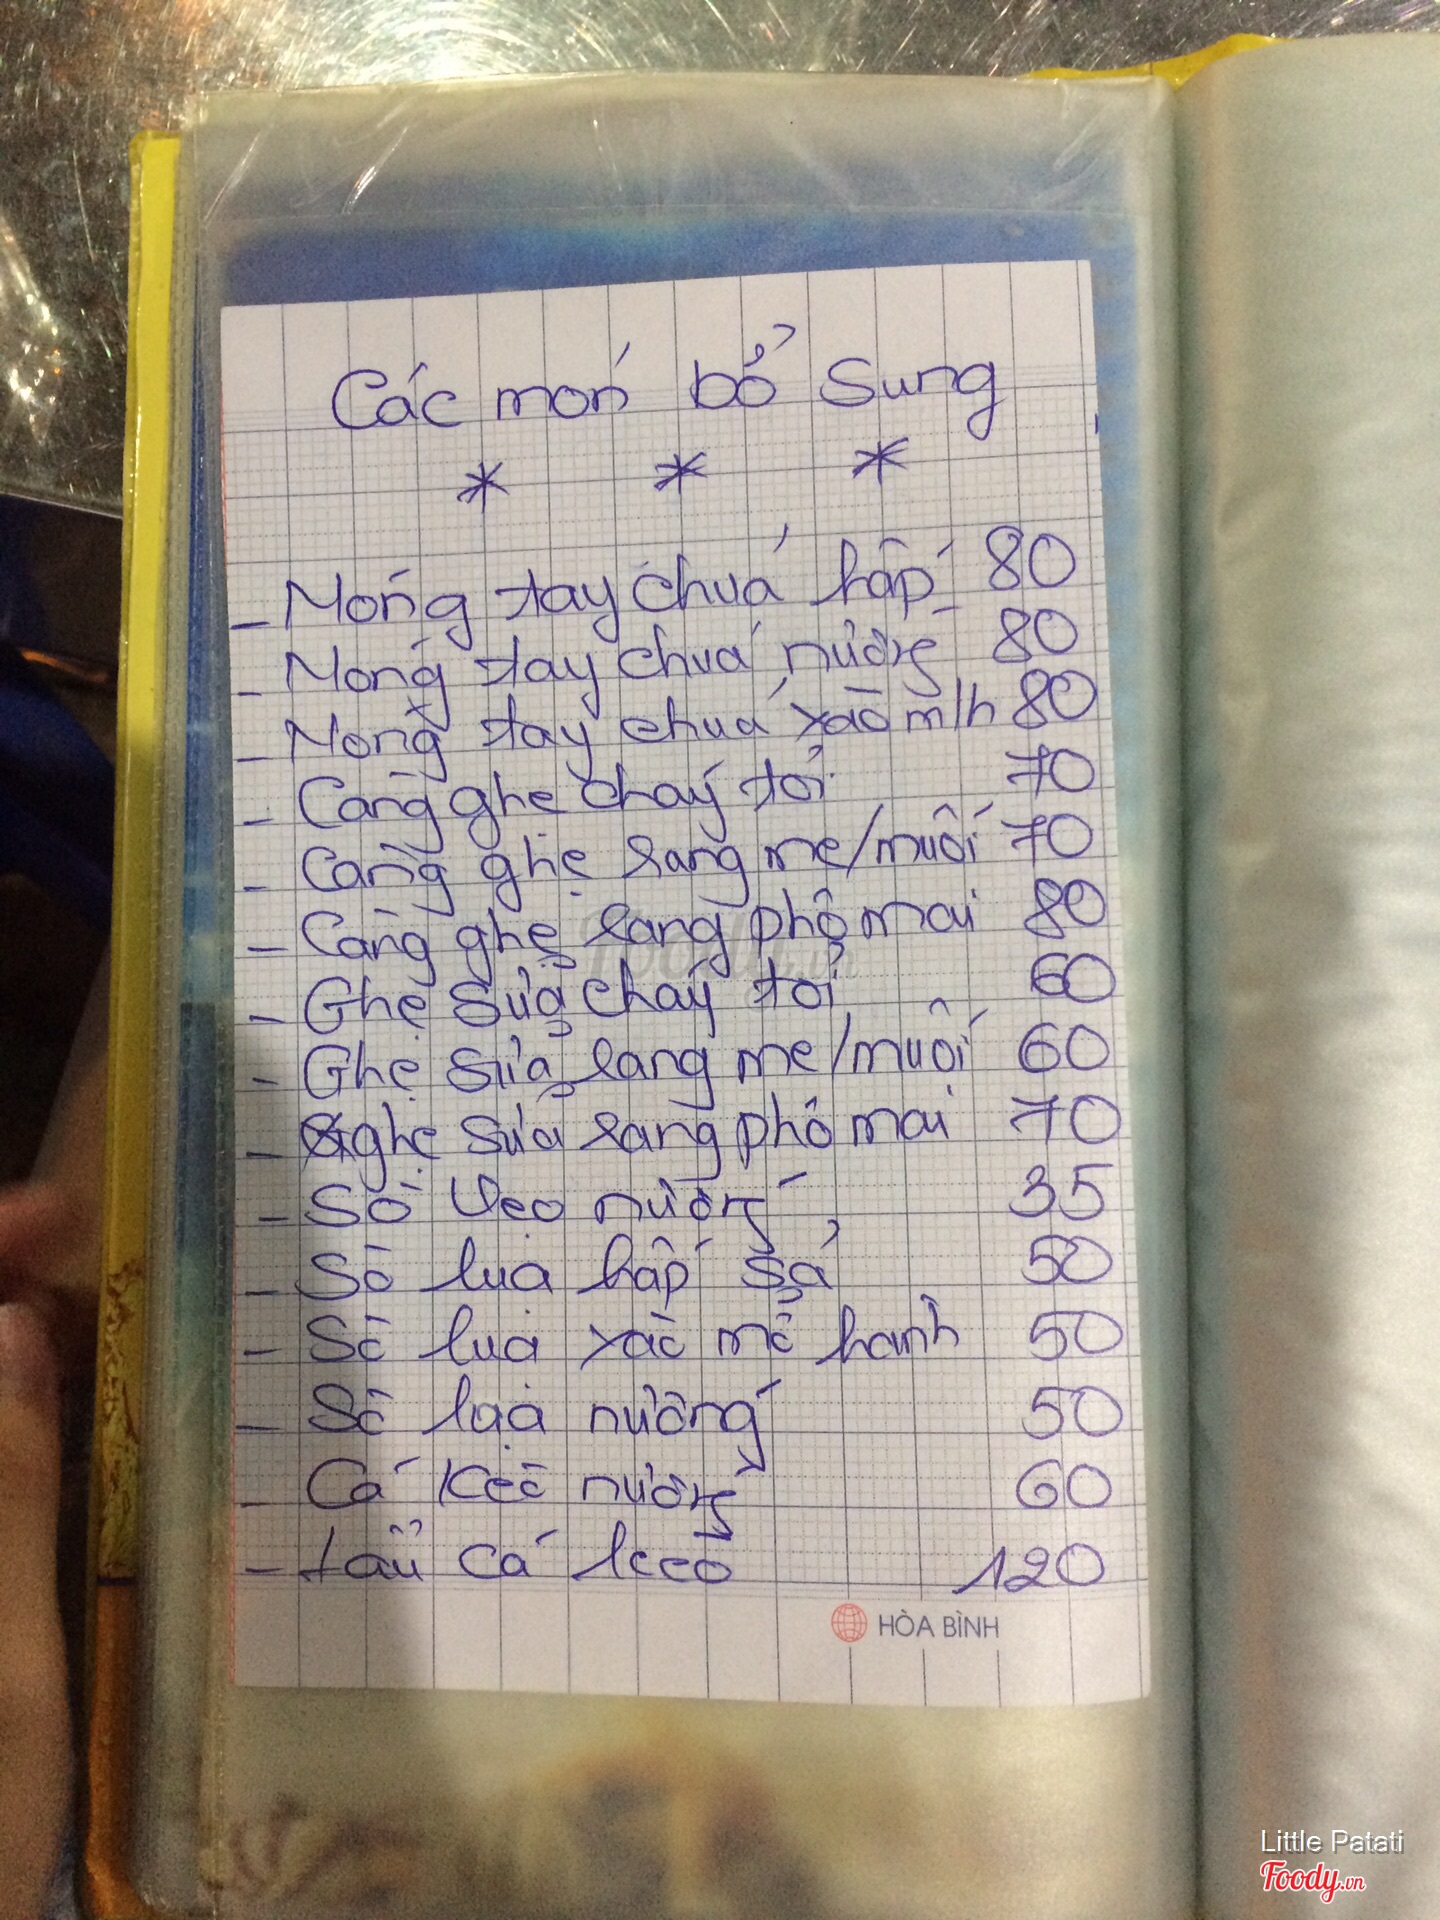 Các món bổ sung
* * *
- Móng tay chúa hấp 80
- Móng tay chúa nướng 80
- Móng tay chúa xào m/h 80
- Càng ghẹ cháy tỏi 70
- Càng ghẹ rang me/muối 70
- Càng ghẹ rang phô mai 80
- Ghẹ sữa cháy tỏi 60
- Ghẹ sữa rang me/muối 60
- ghẹ sữa rang phô mai 70
- Sò vẹo nướng 35
- Sò lụa hấp sả 50
- Sò lụa xào mỡ hành 50
- Sò lụa nướng 50
- Cá kèo nướng 60
- Lẩu cá kèo 120
HÒA BÌNH
Foody.vn
Little Patati
Foody.vn